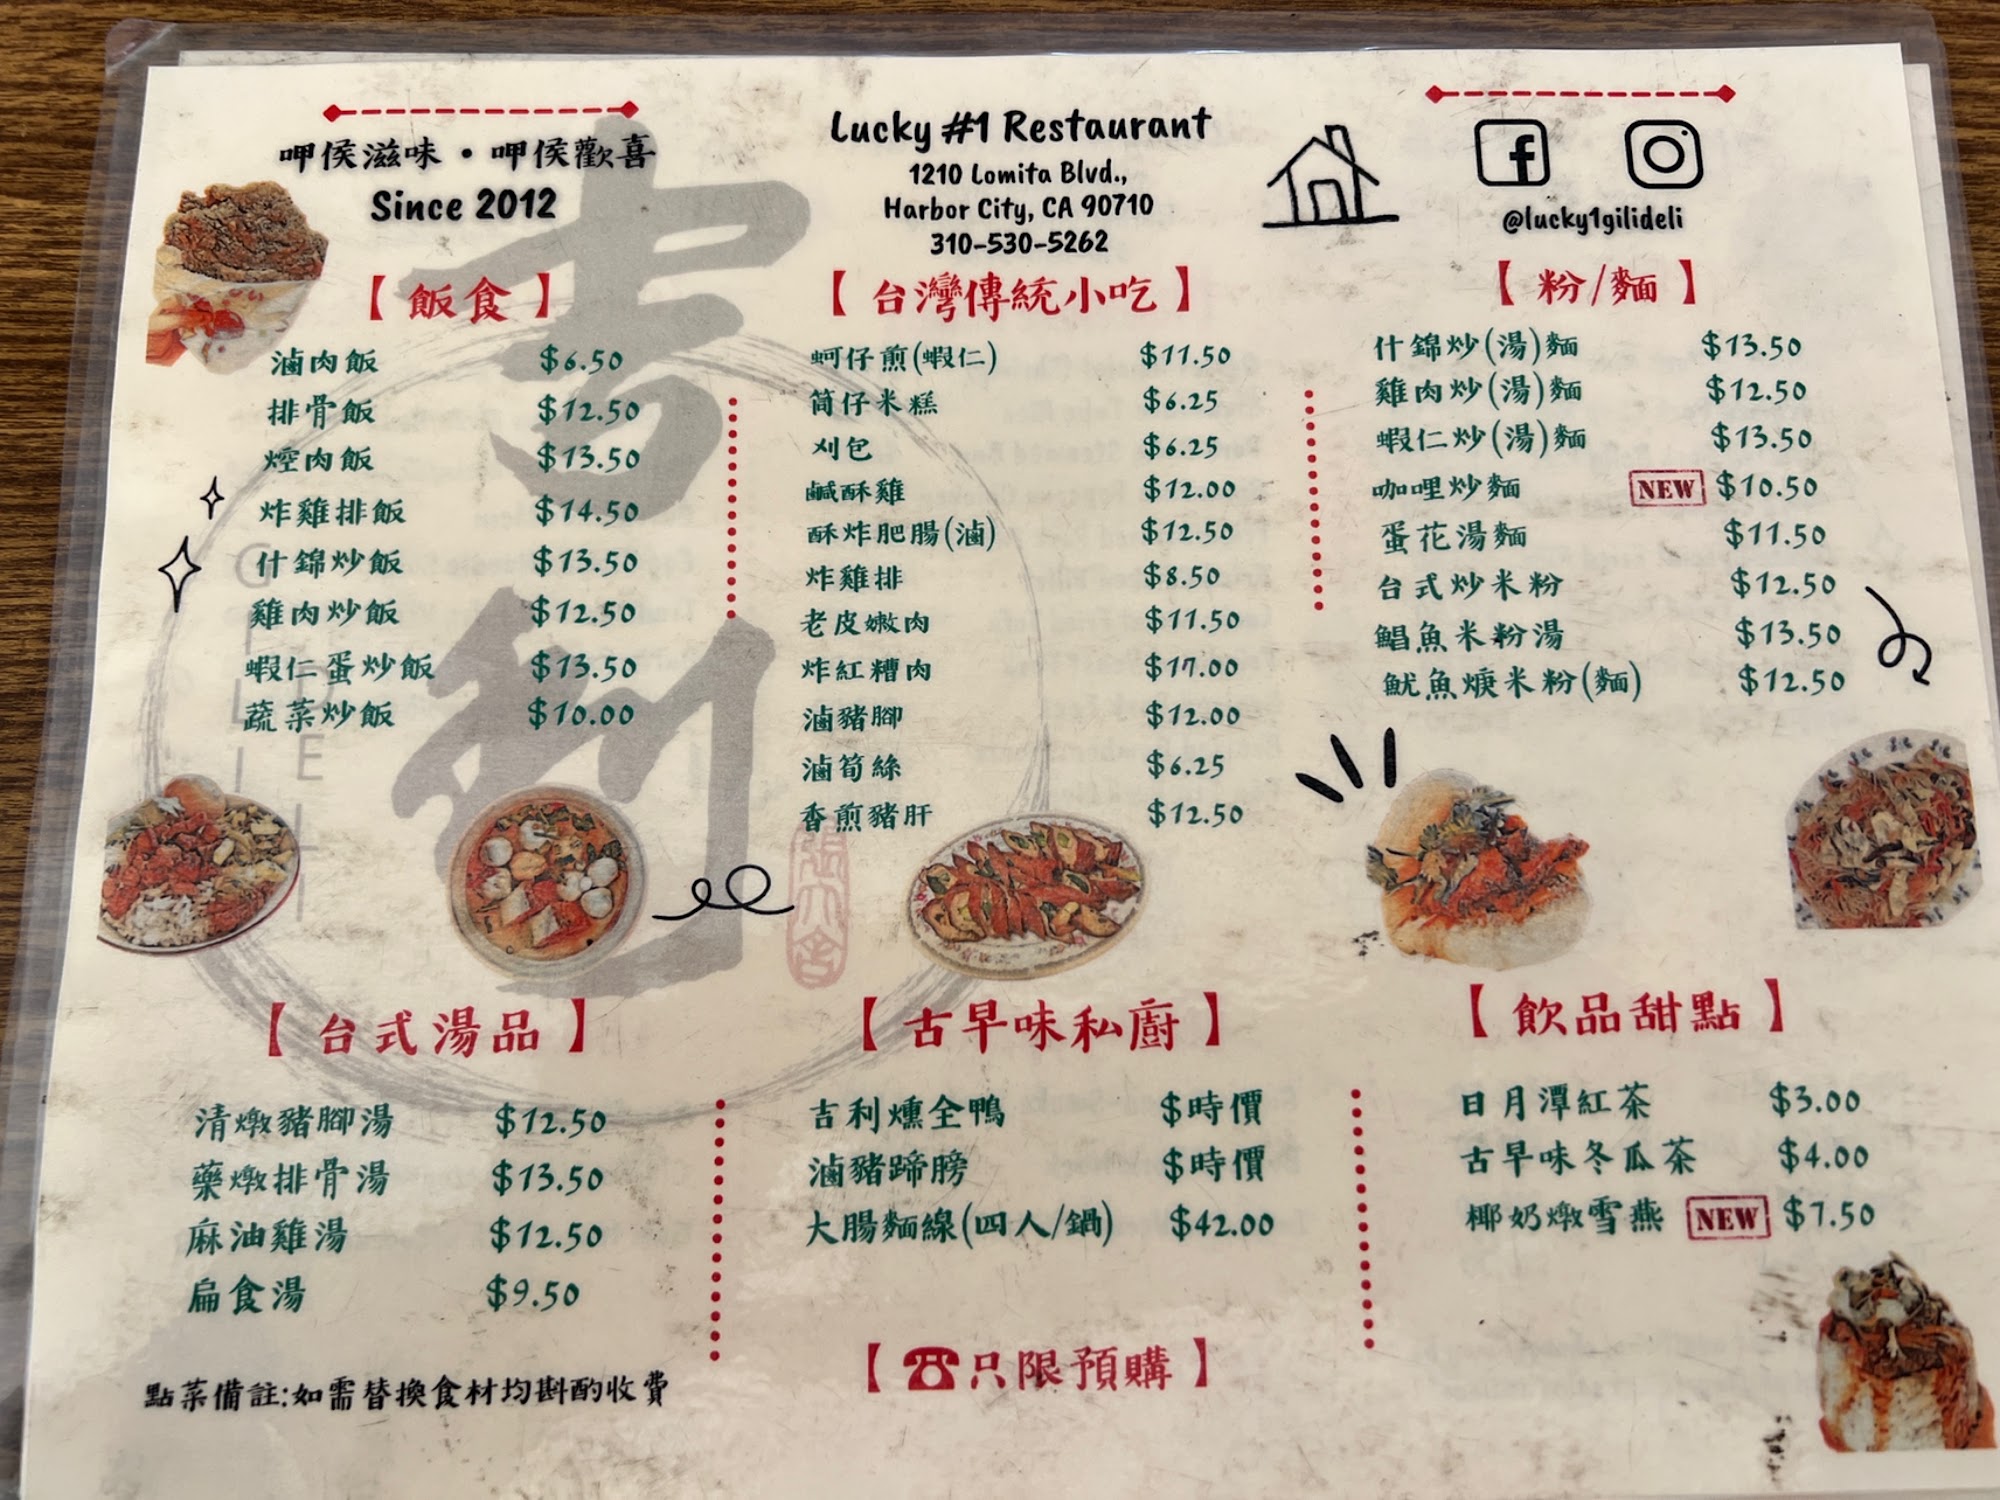 呷侯滋味・呷侯歡喜
Since 2012
Lucky #1 Restaurant
1210 Lomita Blvd.,
Harbor City, CA 90710
310-530-5262
@lucky1gilideli
【 飯食 】
滷肉飯 $6.50
排骨飯 $12.50
焢肉飯 $13.50
炸雞排飯 $14.50
什錦炒飯 $13.50
雞肉炒飯 $12.50
蝦仁蛋炒飯 $13.50
蔬菜炒飯 $10.00
【 台灣傳統小吃 】
蚵仔煎(蝦仁) $11.50
筒仔米糕 $6.25
刈包 $6.25
鹹酥雞 $12.00
酥炸肥腸(滷) $12.50
炸雞排 $8.50
老皮嫩肉 $11.50
炸紅糟肉 $17.00
滷豬腳 $12.00
滷筍絲 $6.25
香煎豬肝 $12.50
【 粉/麵 】
什錦炒(湯)麵 $13.50
雞肉炒(湯)麵 $12.50
蝦仁炒(湯)麵 $13.50
咖哩炒麵 NEW $10.50
蛋花湯麵 $11.50
台式炒米粉 $12.50
鯧魚米粉湯 $13.50
魷魚焿米粉(麵) $12.50
吉利
GILI
【 台式湯品 】
清燉豬腳湯 $12.50
藥燉排骨湯 $13.50
麻油雞湯 $12.50
扁食湯 $9.50
點菜備註:如需替換食材均斟酌收費
【 古早味私廚 】
吉利燻全鴨 $時價
滷豬蹄膀 $時價
大腸麵線(四人/鍋) $42.00
【 ☎只限預購 】
【 飲品甜點 】
日月潭紅茶 $3.00
古早味冬瓜茶 $4.00
椰奶燉雪燕 NEW $7.50